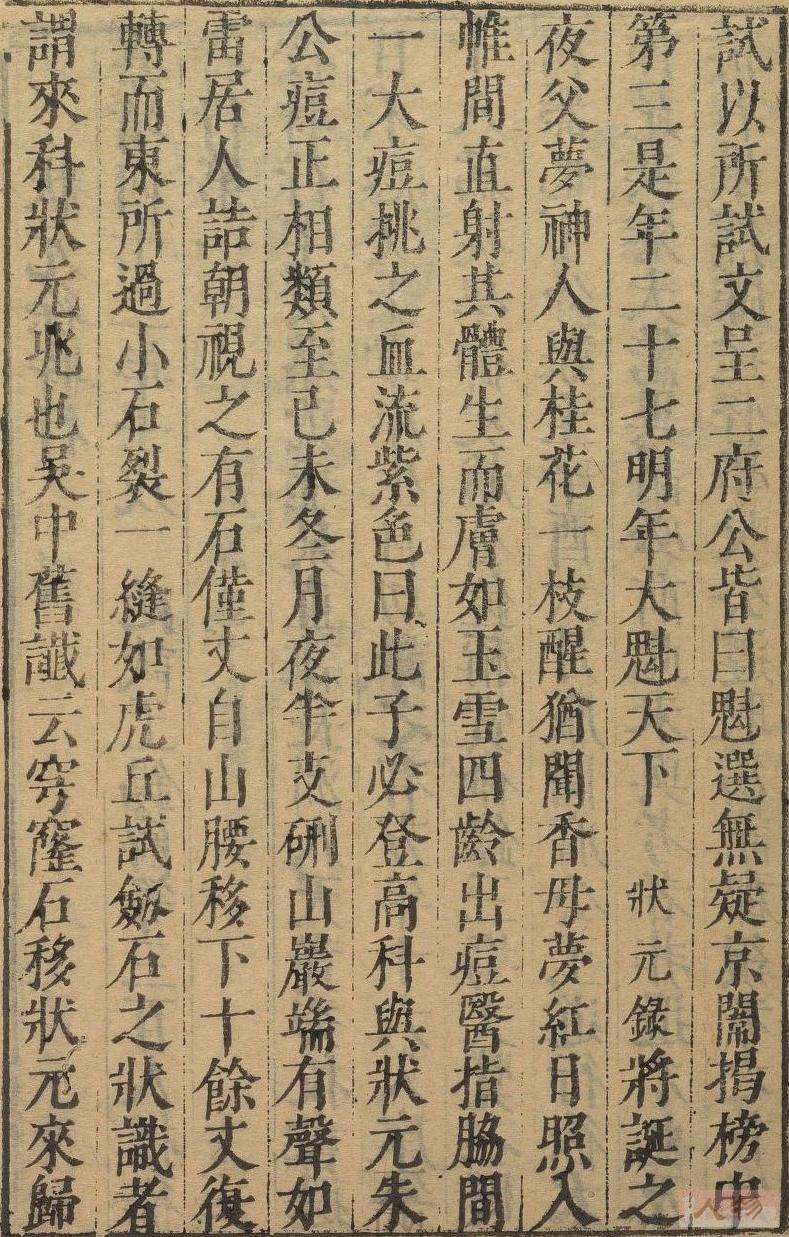 試以所試文呈二府公皆曰魁選無疑京闈揭榜中
第三是年二十七明年大魁天下 狀元錄將誕之
夜父夢神人與桂花一枝醒猶聞香母夢紅日照入
帷間直射其體生而膚如玉雪四齡出痘醫指脇間
一大痘挑之血流紫色曰此子必登高科與狀元朱
公痘正相類至已未冬月夜半支硎山巖端有聲如
雷居人詰朝視之有石僅丈自山腰移下十餘丈復
轉而東所過小石裂一縫如虎丘試劍石之狀識者
謂來科狀元兆也吳中舊讖云穹窿石移狀元來歸